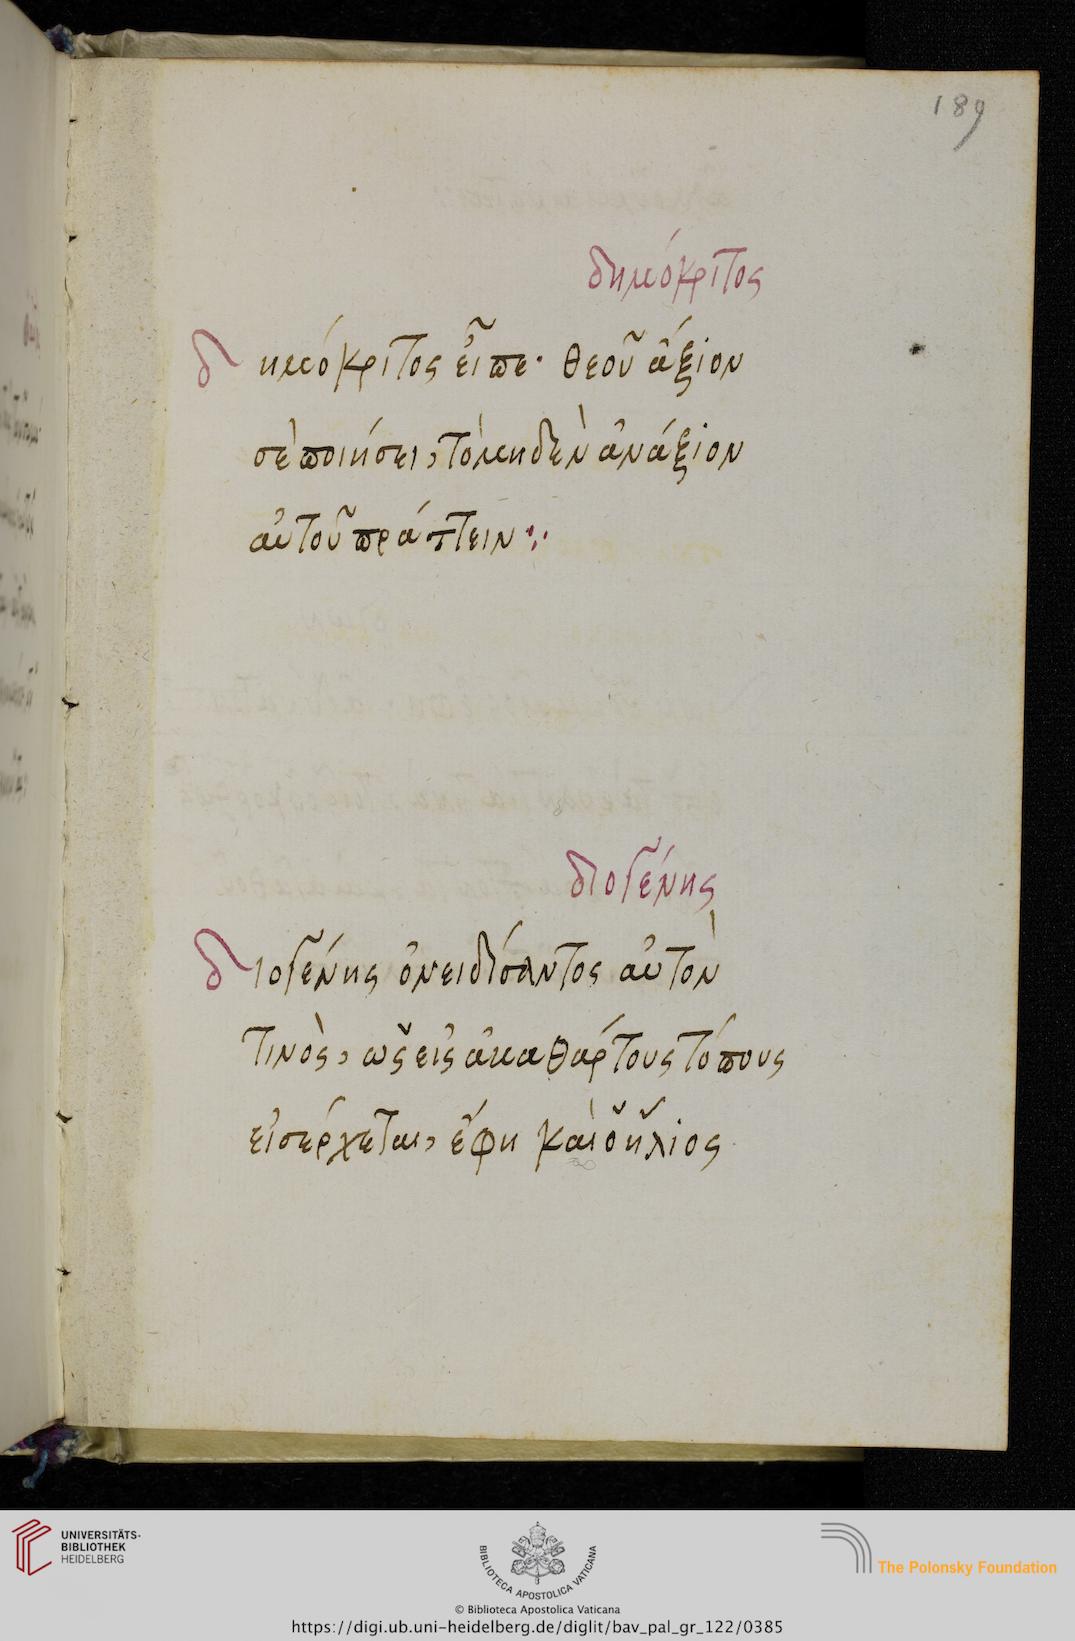 189
δημόκριτος
δημόκριτος εἶπε· θεοῦ ἄξιον
σὲ ποιήσει, τὸ μηδὲν ἀνάξιον
αὐτοῦ πράττειν ⁘
διογένης
διογένης ὀνειδίσαντος αὐτὸν
τινὸς, ὡς εἰς ἀκαθάρτους τόπους
εἰσέρχεται, ἔφη καὶ ὁ ἥλιος
UNIVERSITÄTS-
BIBLIOTHEK
HEIDELBERG
BIBLIOTECA APOSTOLICA VATICANA
The Polonsky Foundation
© Biblioteca Apostolica Vaticana
https://digi.ub.uni-heidelberg.de/diglit/bav_pal_gr_122/0385